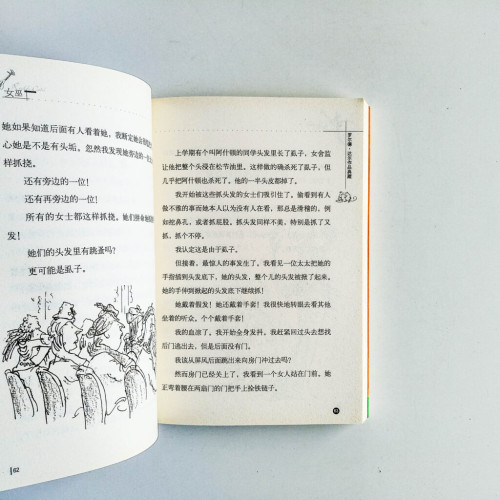 女巫
她如果知道后面有人看着她，我断定她会
心她是不是有头垢。忽然我发现她旁边的一位
样抓挠。
还有旁边的一位！
还有再旁边的一位！
所有的女士都这样抓挠。她们拼命
发！
她们的头发里有跳蚤吗？
更可能是虱子。
62
罗尔德·达尔作品典藏
上学期有个叫阿什顿的同学头发里长了虱子，女舍监
让他把整个头浸在松节油里。这样做的确杀死了虱子，但
几乎把阿什顿也杀死了。他的一半头皮都掉了。
我开始被这些抓头发的女士们吸引住了。偷看到有人
做不雅的事而她本人以为没有人在看，那总是滑稽的，例
如挖鼻孔，或者抓屁股。抓头发同样不美，特别是抓了又
抓，抓个不停。
我认定这是由于虱子。
但接着，最惊人的事发生了。我看见一位太太把她的
手指插到头发底下，她的头发，整个儿的头发被掀了起来。
她的手伸到掀起的头发底下继续抓！
她戴着假发！她还戴着手套！我很快地转眼去看其他
坐着的听众。个个戴着手套！
我的血凉了。我开始全身发抖。我赶紧回过头去想找
后门逃出去，但是后面没有门。
我该从屏风后面跳出来向房门冲过去吗？
然而房门已经关上了，我看到一个女人站在门前。她
正弯着腰在两扇门的门把手上拴铁链子。
63